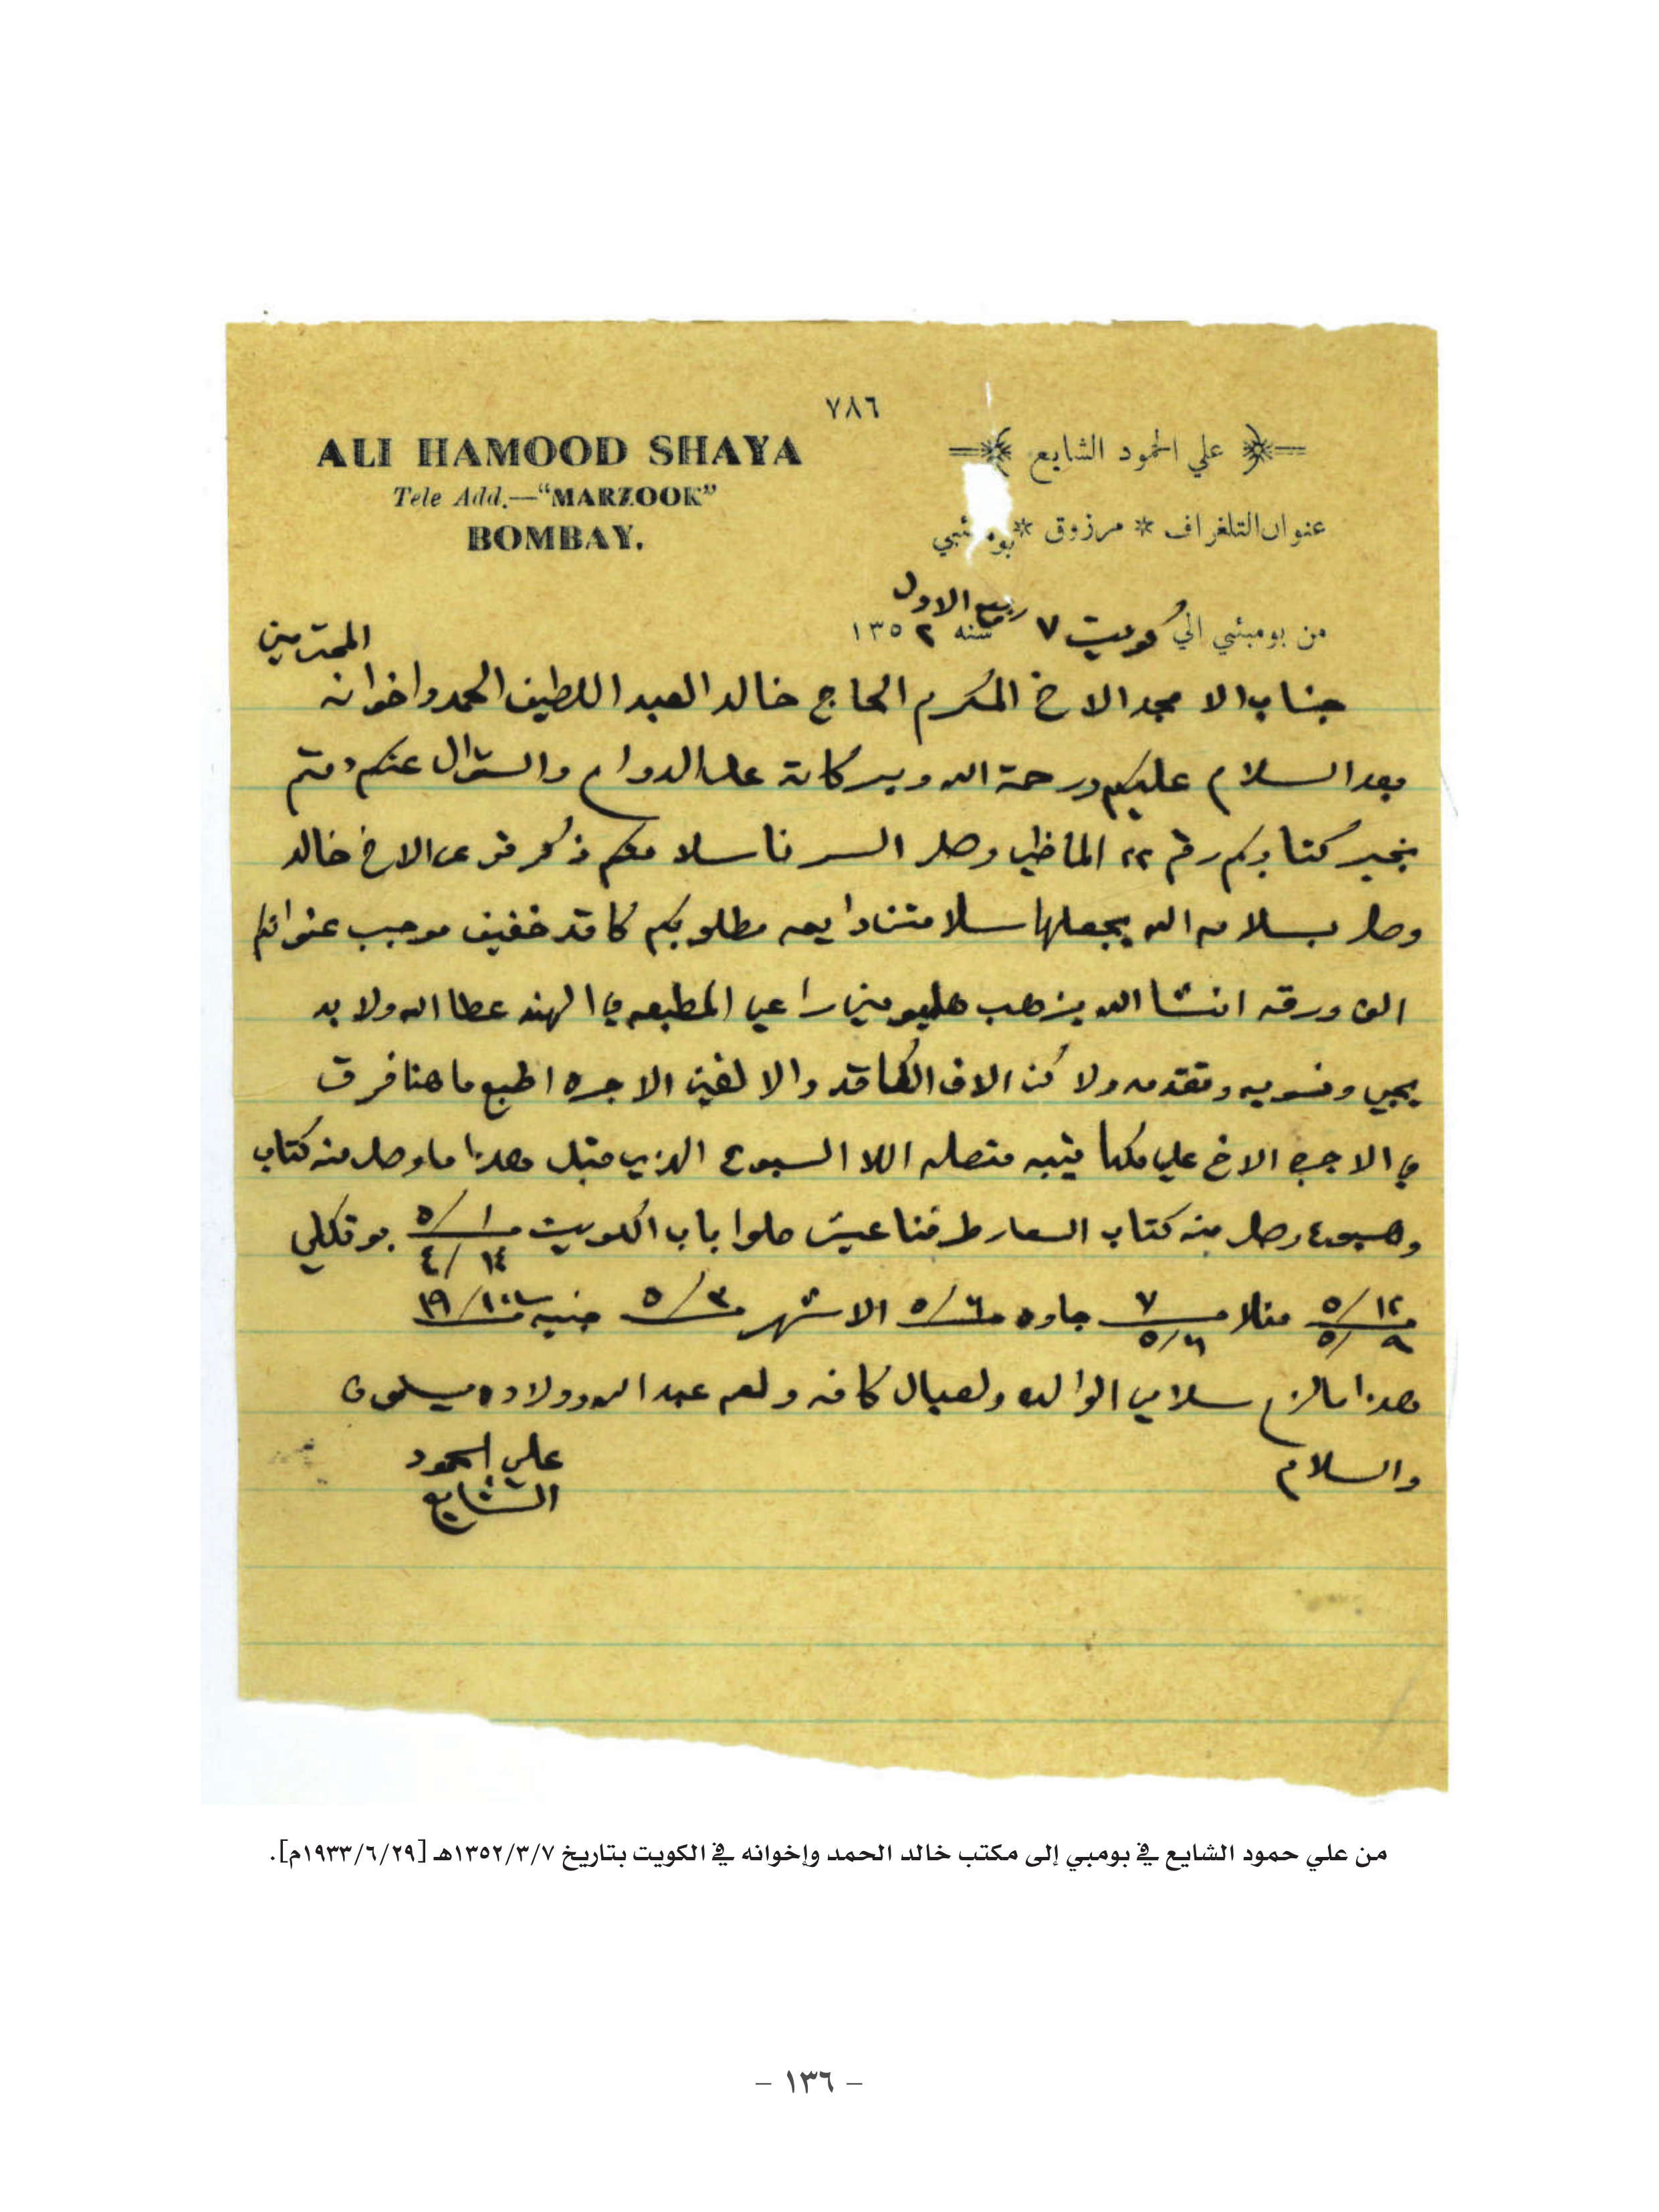 ٧٨٦
علي الحمود الشايع
ALI HAMOOD SHAYA
عنوان التلغراف * مرزوق * بومبئي
Tele Add.—“MARZOOK”
BOMBAY.
من بومبئي الي كويت ٧ ربيع الاول سنه ١٣٥٢
جناب الا مجد الاخ المكرم الحاج خالد العبد اللطيف الحمد واخوانه المحترمين
بعد السلام عليكم ورحمة الله وبركاته على الدوام والسؤال عنكم دمتم
بخير كتابكم رقم ٢٢ الماظي وصل السرنا سلامتكم ذكر قوى الاخ خالد
وصل بسلامه الله يجعلها سلامتنا دايمه مطلوبكم كاقد خفيف موجب عنوانكم
الف ورقه انشا الله يزهب هليومين راعي المطبعه في الهند عطا الله ولا بد
يجي ونسويه ونقدمه ولا كن الاف الكاقد والا لفين الاجره اطبع ما هنا فرق
في الاجره الاخ علي مكاتيبه متصله اللا السبوع الذي قبل هذا ما وصل منه كتاب
وهسبوع وصل منه كتاب السعار طرفنا عيش حلوا باب الكويت ١/٥ ١٤/٤ بو قلكلي
١٢/٥ ٩/٥ منلا ٧ ٦/٥ جاوه ٦/٥ الاشهر ٣/٥ جنيه ١٠/١٩
هذا مالزم سلامي الوالده ولعيال كافه ولعم عبد الله وولاده يسلمون
والسلام
علي الحمود
الشايع
من علي حمود الشايع في بومبي إلى مكتب خالد الحمد وإخوانه في الكويت بتاريخ ١٣٥٢/٣/٧هـ [١٩٣٣/٦/٢٩م].
– ١٣٦ –